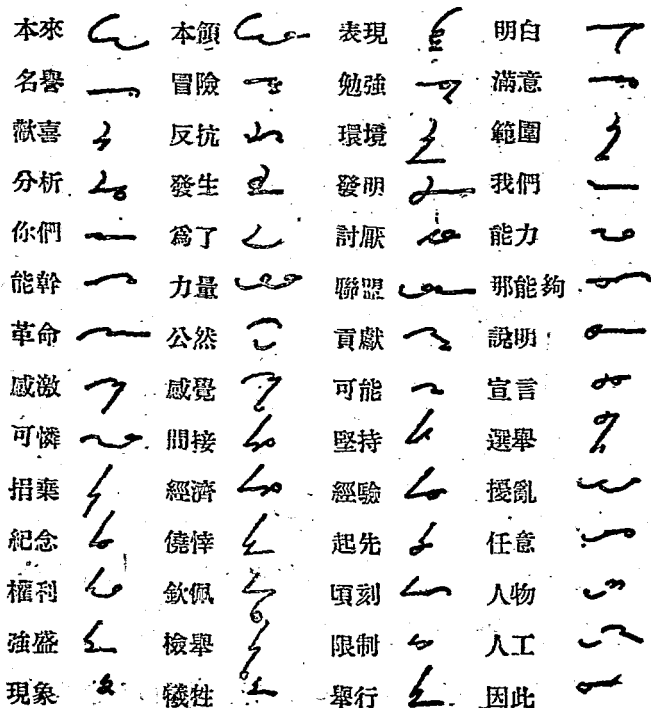 本來 本領 表現 明白
名譽 冒險 勉強 滿意
歡喜 反抗 環境 範圍
分析 發生 發明 我們
你們 爲了 討厭 能力
能幹 力量 聯盟 那能夠
革命 公然 貢獻 說明
感激 感覺 可能 宣言
可憐 間接 堅持 選舉
捐棄 經濟 經驗 擾亂
紀念 僥悻 起先 任意
權利 欽佩 頃刻 人物
強盛 檢舉 限制 人工
現象 犧牲 舉行 因此